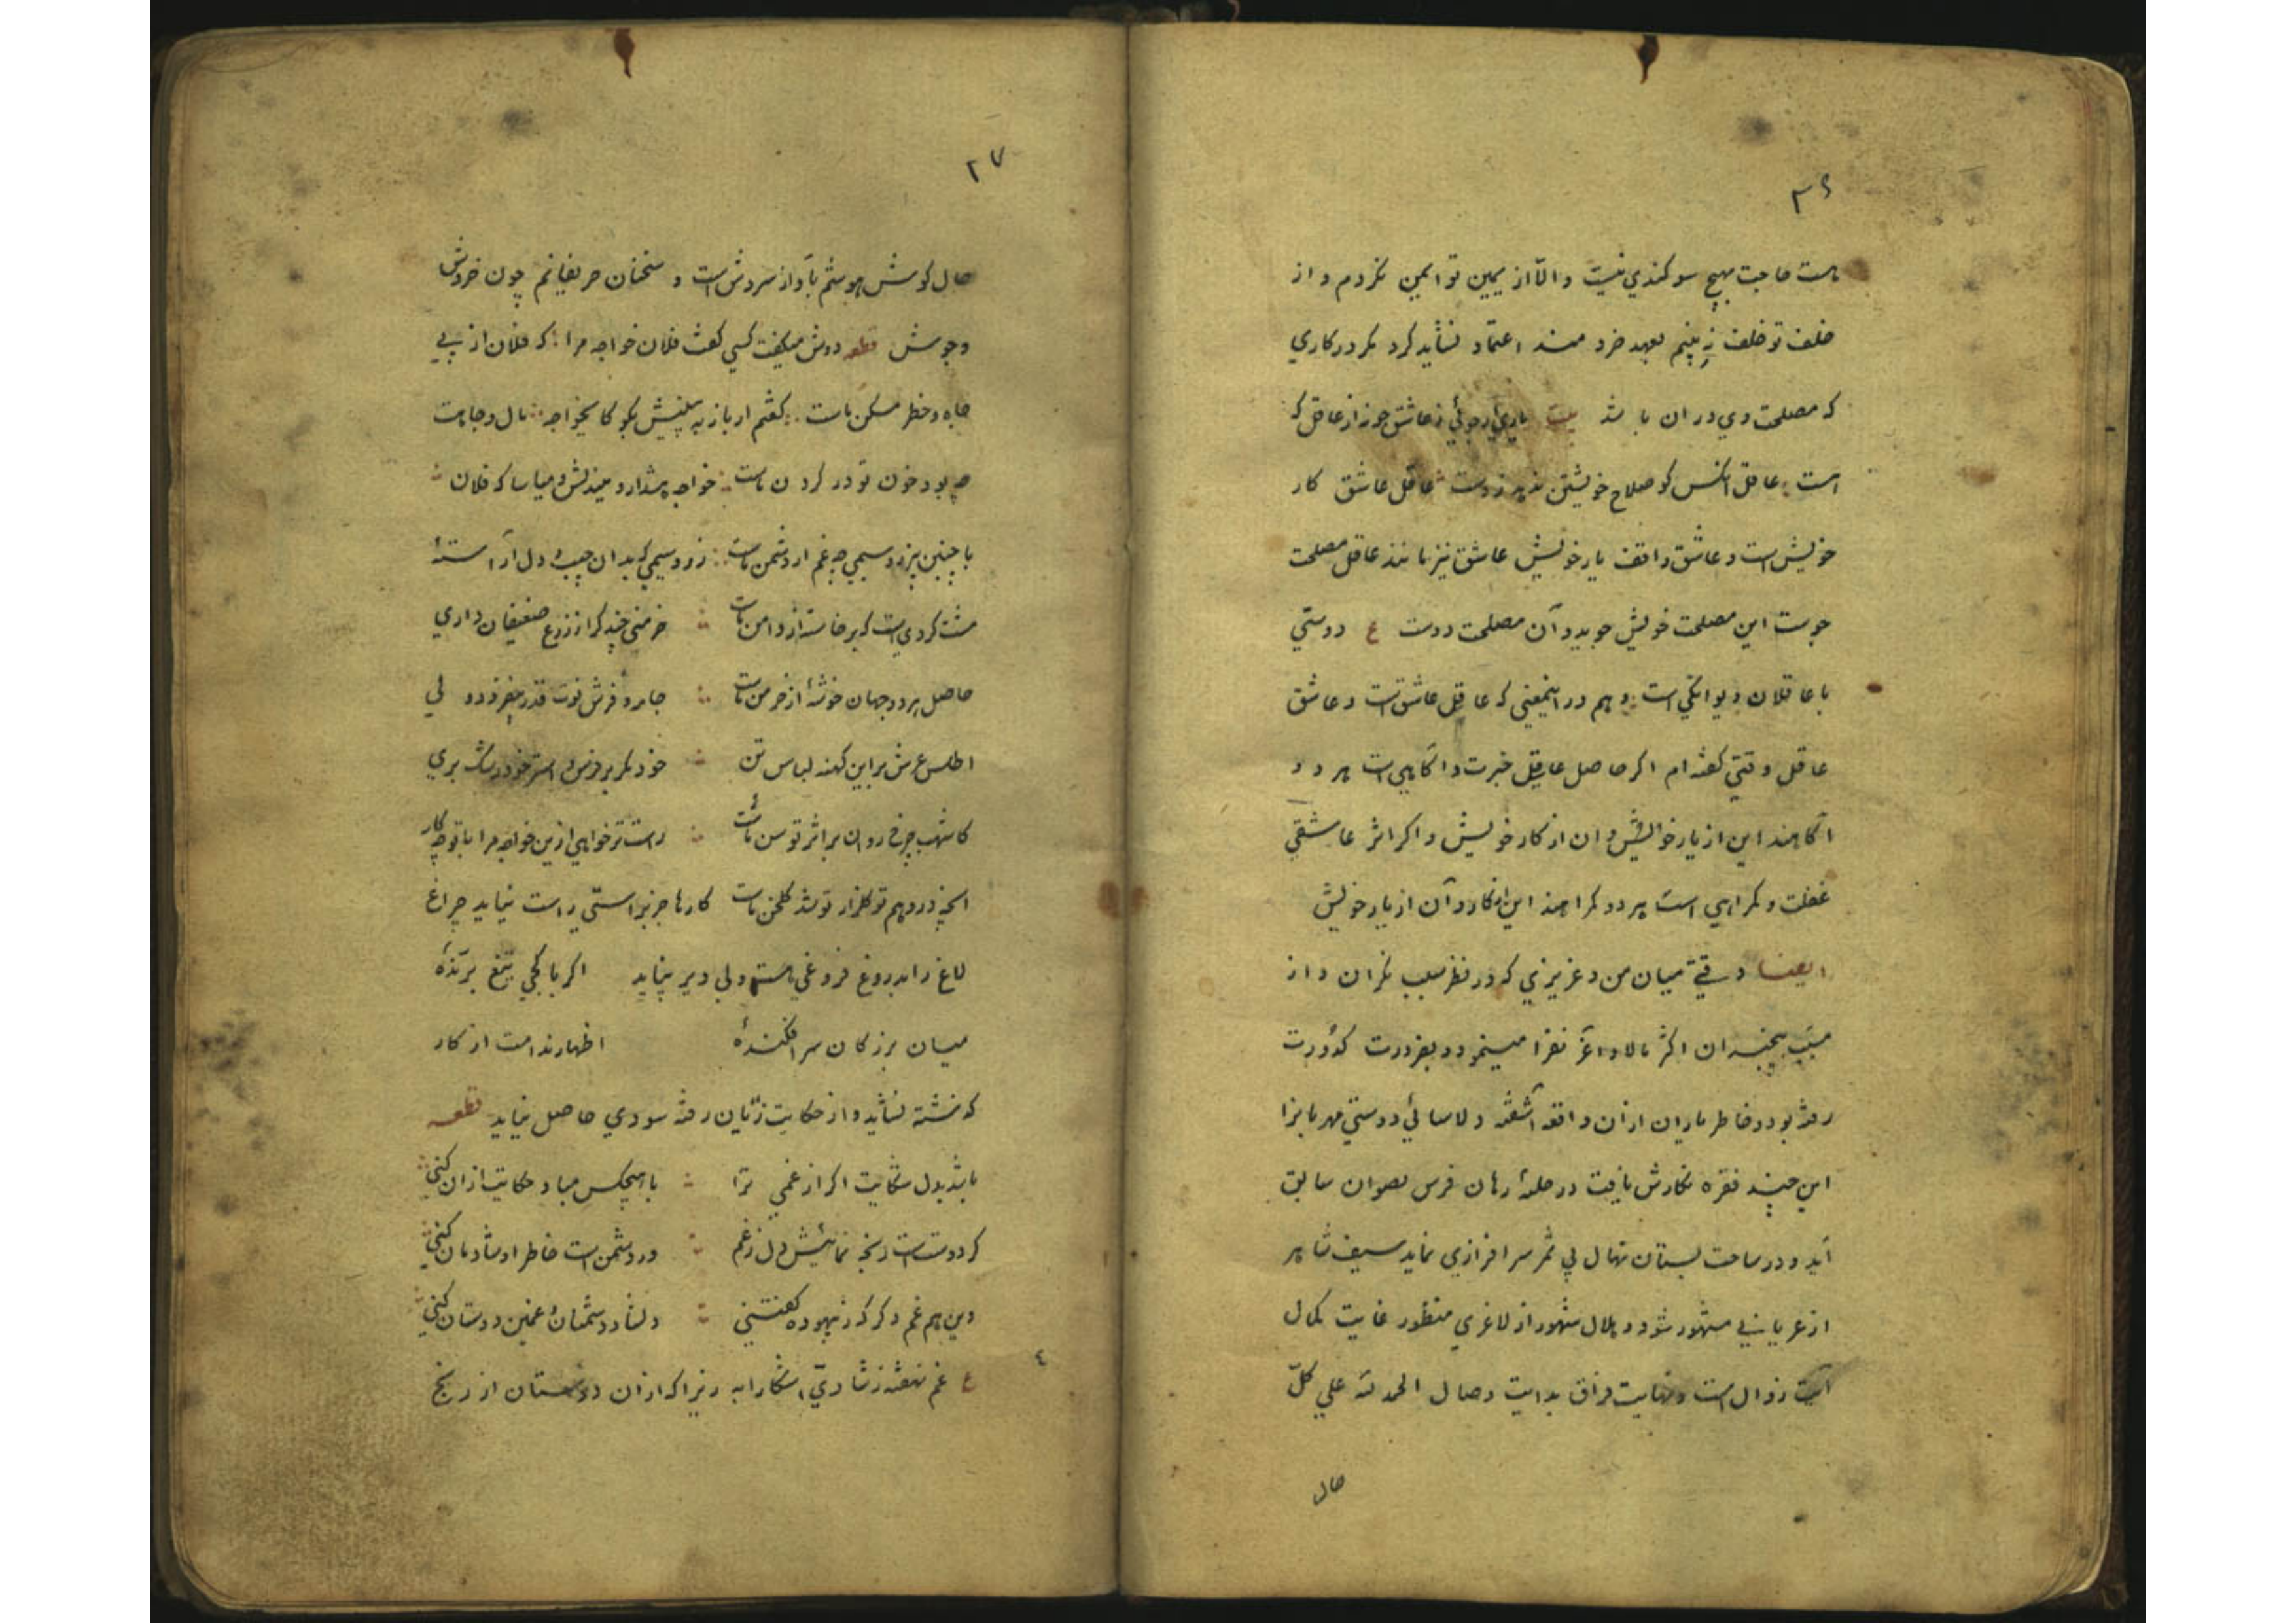 ۳۶
ماست حاجت بهیچ سوکندي نیست و الّا از یمین تو ایمن نکردم و از
خلف تو خلف نه بینم بعهد خرد مند اعتماد نشاید کرد مکر در کاري
که مصلحت وي در ان باشد بیت یاري ار جوئي ز عاشق جو نه از عاقل که
است عاقل انکس کو صلاح خویشتن عاقل عاشق کار
خویش است و عاشق واقف یار خویش عاشق نیز مانند عاقل مصلحت
جوست این مصلحت خویش جوید و آن مصلحت دوست ع دوستي
با عاقلان دیوانکي است و هم در اینمعني که عاقل عاشق است و عاشق
عاقل وقتي کفته ام اکر حاصل عاقل خبرت و اکاهي است هر دو
آکاهند این از یار خویش و ان از کار خویش و اکر اثر عاشقي
غفلت و کمراهي است هر دو کمراهند این از کار و آن از یار خویش
ایضا وقتي میان من و عزیزي که در نظر سبب نکران و از
مسبّب بیخبران اکثر مالا و اعزّ نفرا مینمود و بضرورت کدورت
رفته بود و خاطر یاران از ان واقعه آشفته و لاسائي دوستي مهربانرا
این چند فقره نکارش یافت در حلبهٔ رهان فرس سابق
آید و در ساحت بستان نهال بي ثمر سرافرازي نماید سیف شاهر
از عریاني مشهور شود و هلال شهور از لاغري منظور غایت کمال
آیت زوال است و نهایت فراق بدایت وصال الحمد لله علي کلّ
حال
۲۷
حال کوش هوشم بآواز سروش است و سخنان حریفانم چون خروش
وجوش قطعه دوش میکفت کسي کفت فلان خواجه مرا که فلان از پي
جاه و خطر مسکن ماست کفتم ار باز به بینیش بکو کایخواجه مال و جاهت
چه بود خون تو در کردن ماست خواجه پندارد و میاسا که فلان
با چنین زر و سیمي چه غم ار دشمن ماست زر و سیمي که بدان جیب و دل آراستهٔ
مشت کردي است که برخاسته از دامن ماست خرمني چند کر از زرع ضعیفان داري
حاصل هر دو جهان خوشهٔ از خرمن ماست جامه و فرش نوت قدر بیفزود ولي
اطلس عرش براین کهنه لباس تن خود مکر بر فرس و استر خود رشک بري
کاشهب چرخ روان بر اثر توسن ماست راست تر خواهي ازین خواجه مرا با تو چکار
انچه در وهم تو کلزار تو شد کلخن ماست کارها جز براستي راست نیاید چراغ
لاغ را بدروغ فروغي هست ولي دیر نپاید اکر با کجي تیغ برّندهٔ
میان بزرکان سر افکندهٔ اظهار ندامت از کار
کذشته نشاید و از حکایت زیان رفته سودي حاصل نیاید قطعه
باشد بدل شکایت اکر از غمي ترا با هیچکس مباد حکایت از ان کني
کر دوست است رنجه نمائیش دل ز غم ور دشمن است خاطر او شادمان کني
وین هم غم دکر که ز بیهوده کفتني دلشاد دشمنان و غمین دوستان کني
ع غم نهفته ز شادي آشکارا به زیرا که از ان دوستان از رنج
٤